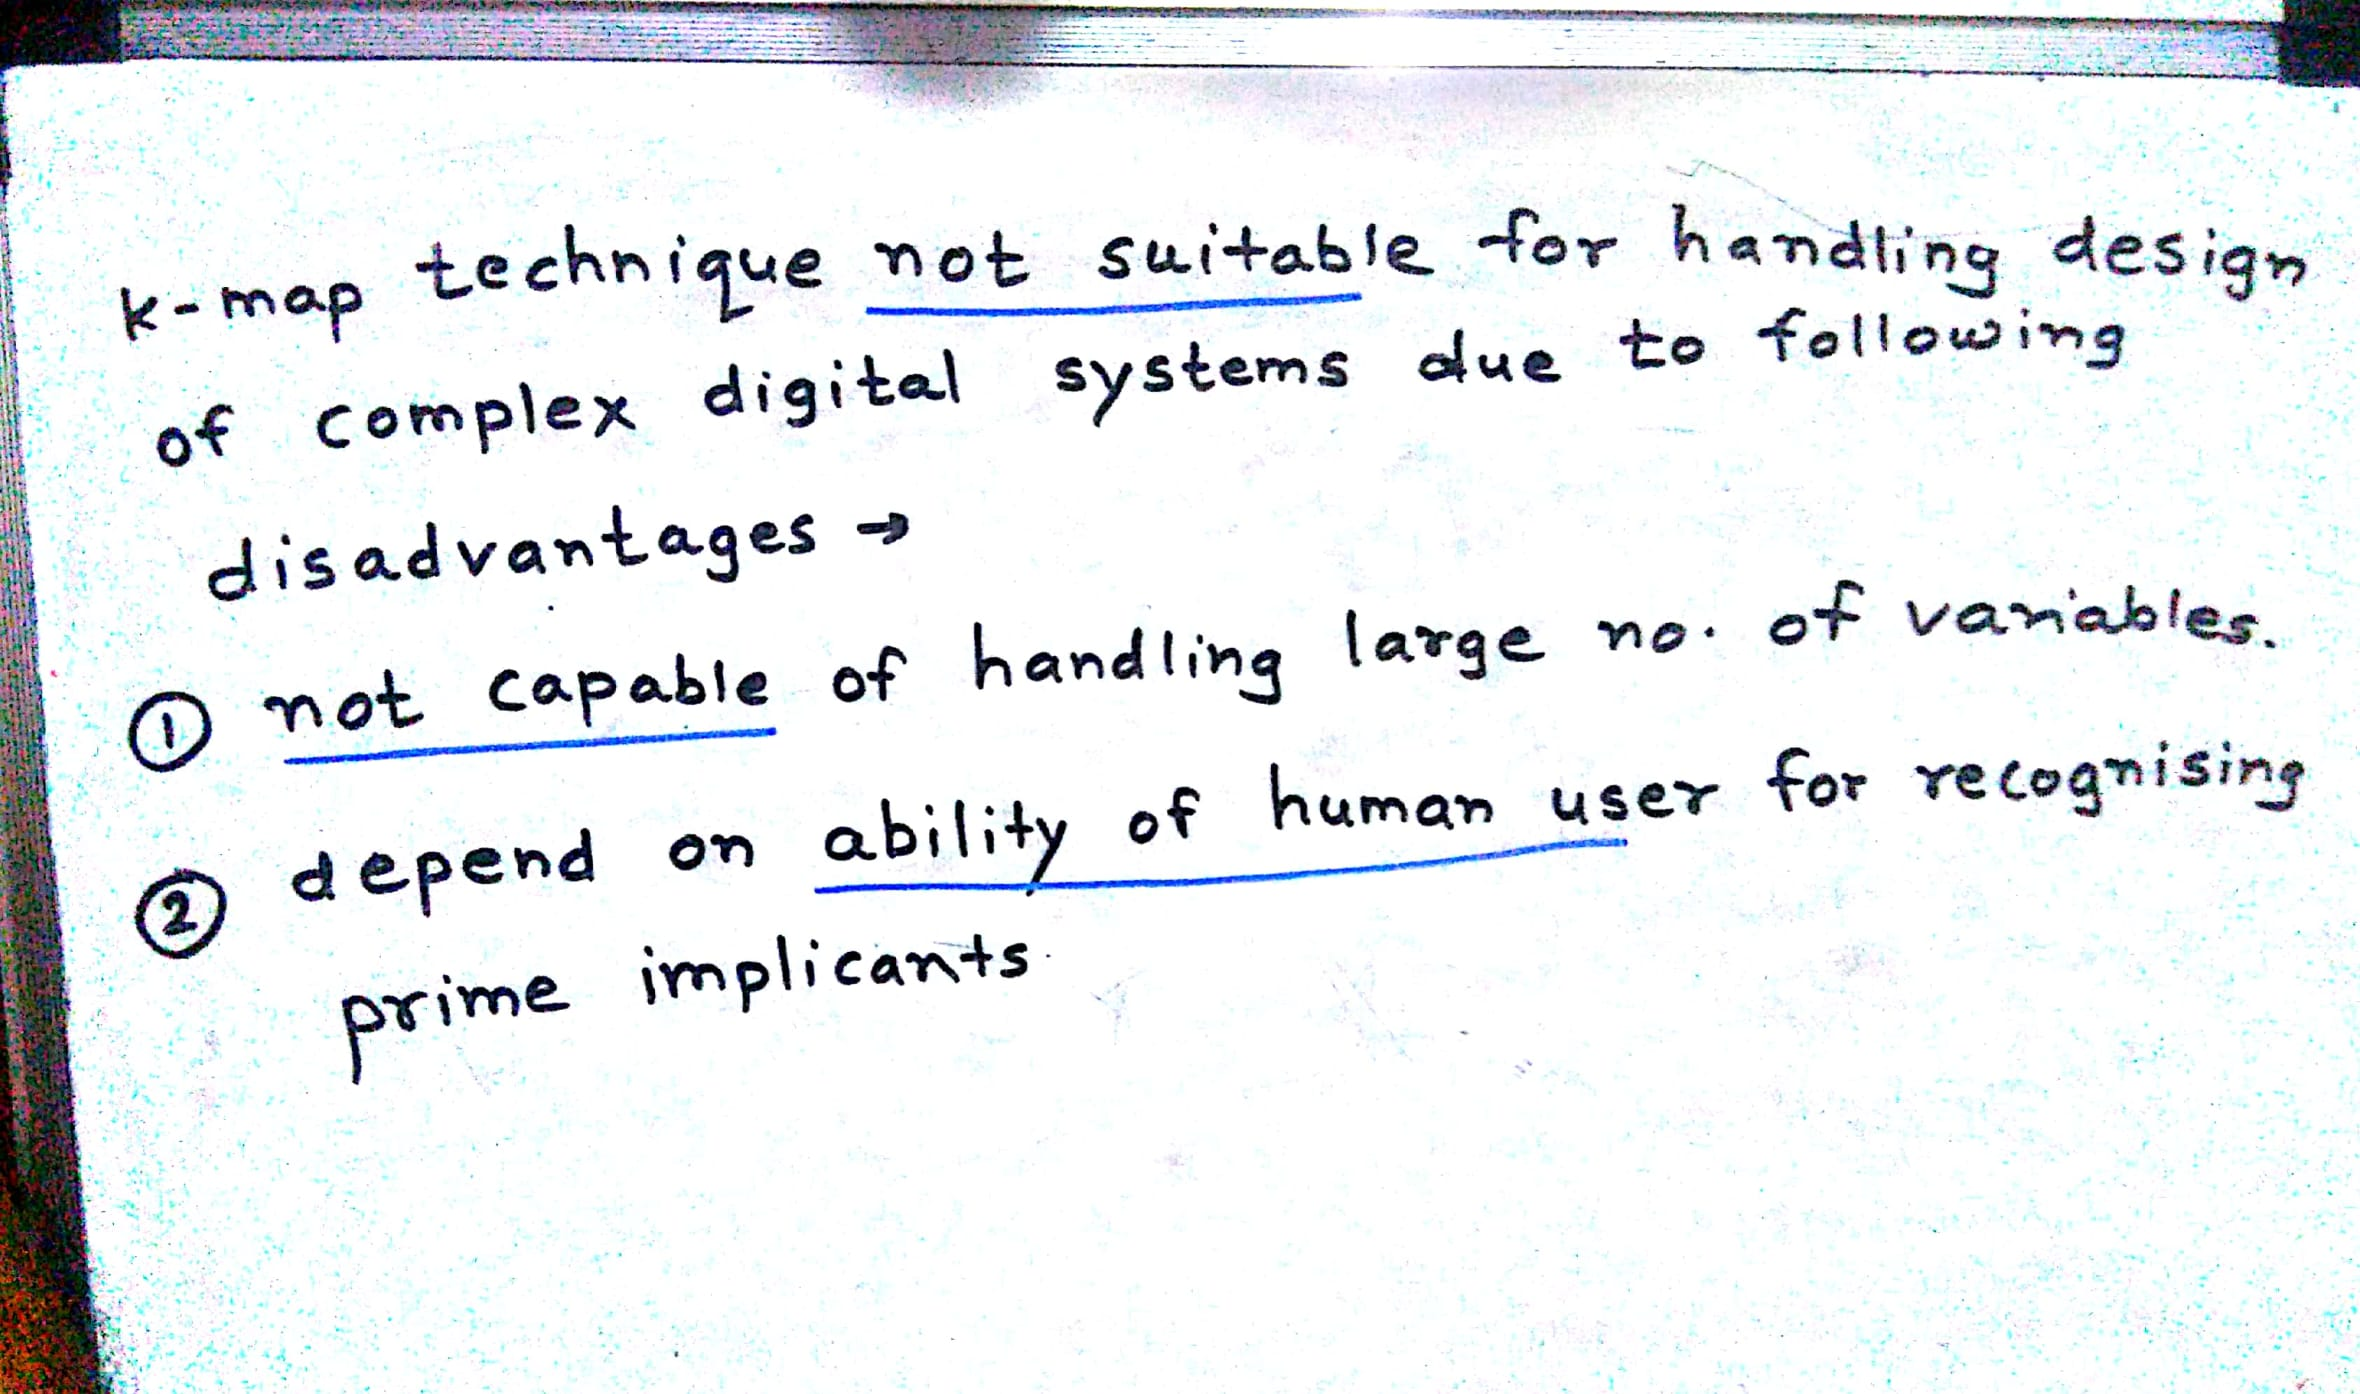 k-map technique not suitable for handling design
of complex digital systems due to following
disadvantages →
① not capable of handling large no. of variables.
② depend on ability of human user for recognising
prime implicants.